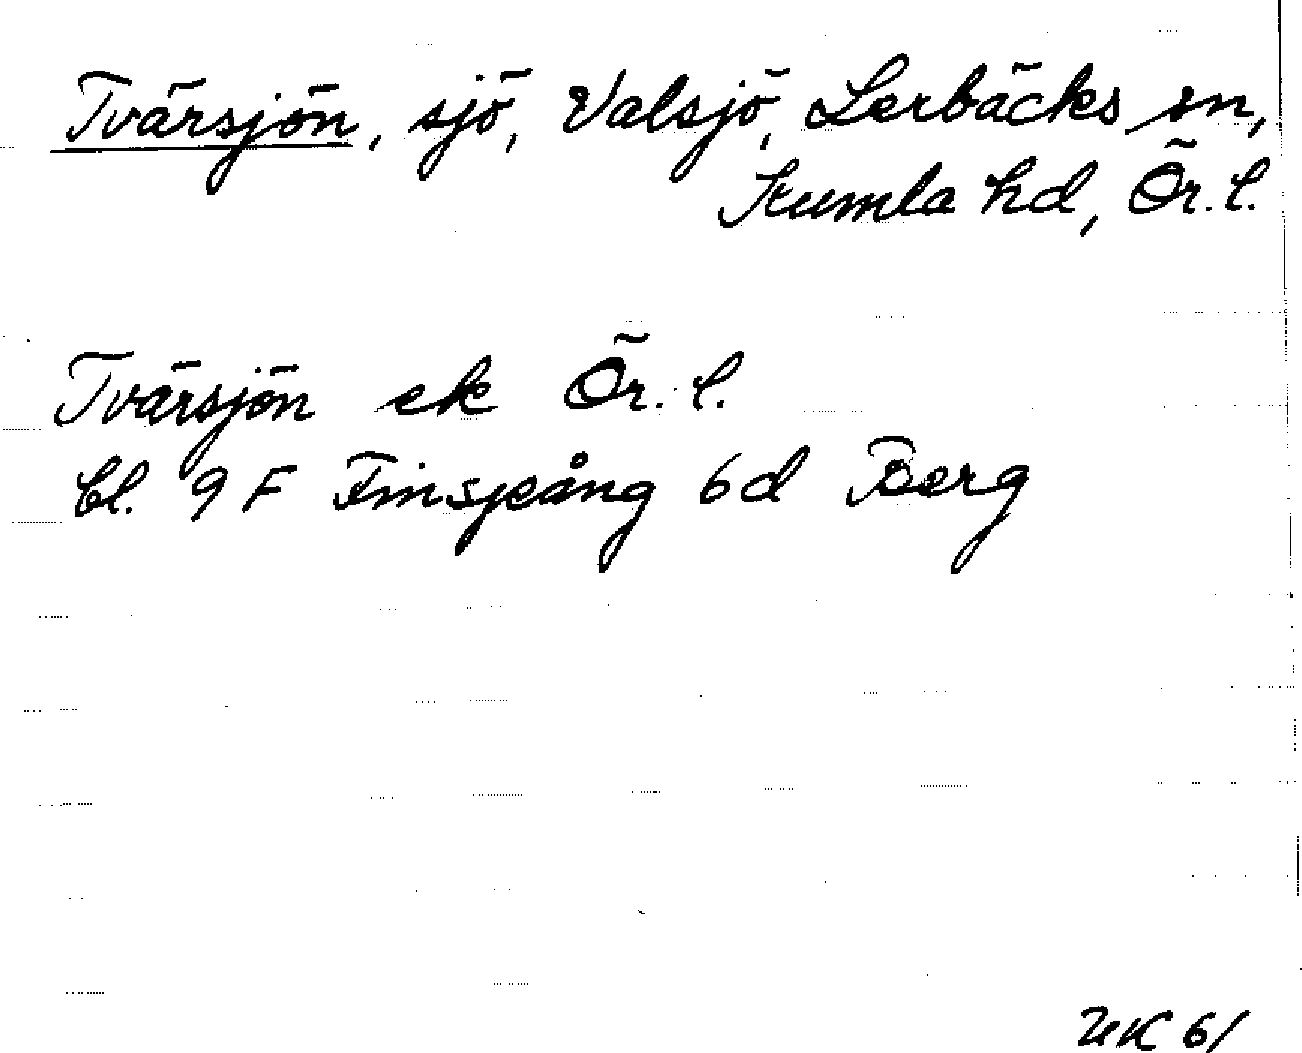 Tvärsjön, sjö, Valsjö, Lerbäcks sn,
Kumla hd, Ör. l.
Tvärsjön ek Ör. l.
bl. 9 F Finspång 6d Berg
UK 61